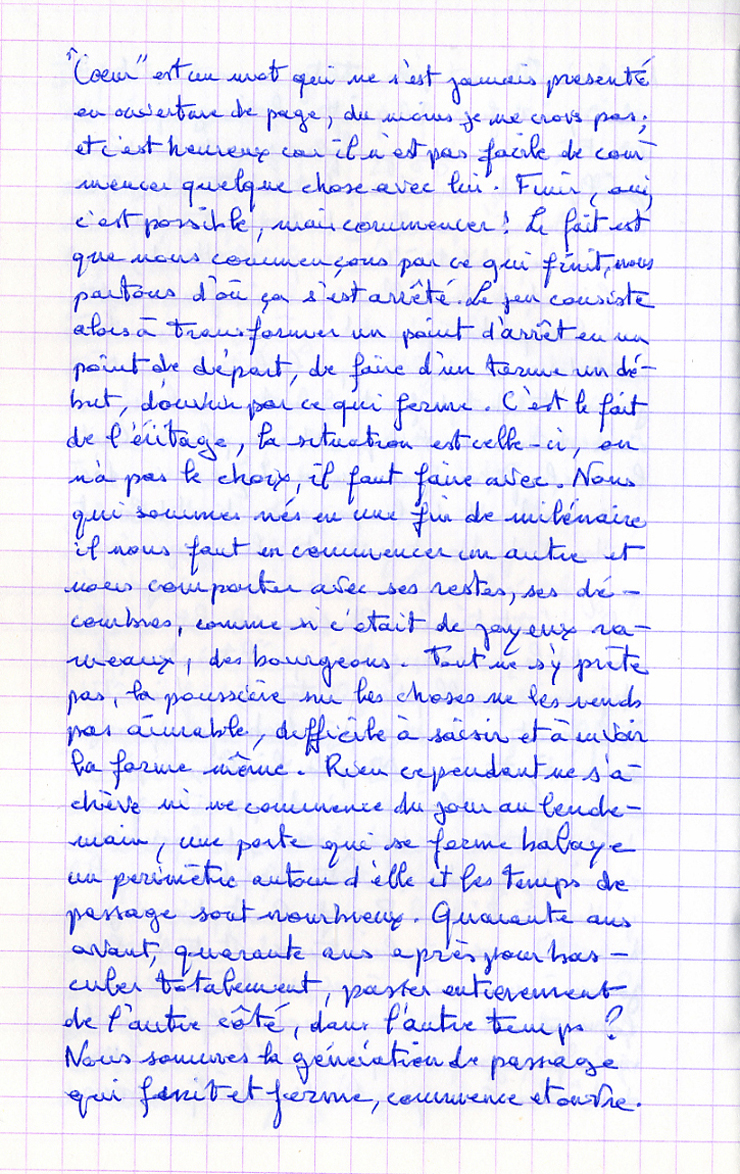 "Coeur" est un mot qui ne s'est jamais presenté
en ouverture de page, du moins je ne crois pas;
et c'est heureux car il n'est pas facile de com-
mencer quelque chose avec lui. Finir, oui,
c'est possible, mais commencer! Le fait est
que nous commençons par ce qui finit, nous
partons d'où ça s'est arrêté. Le jeu consiste
alors à transformer un point d'arrêt en un
point de départ, de faire d'un terme un dé-
but, d'ouvrir par ce qui ferme. C'est le fait
de l'éritage, la situation est celle-ci, on
n'a pas le choix, il faut faire avec. Nous
qui sommes nés en une fin de milénaire
il nous faut en commencer un autre et
nous comporter avec ses restes, ses dé-
combres, comme si c'était de joyeux ra-
meaux, des bourgeons. Tout ne s'y prête
pas, la poussière sur les choses ne les rends
pas aimable, difficile à saisir et à en voir
la forme même. Rien cependant ne s'a-
chève ni ne commence du jour au lende-
main, une porte qui se ferme balaye
un périmètre autour d'elle et les temps de
passage sont nombreux. Quarante ans
avant, quarante ans après pour bas-
culer totalement, passer entierement
de l'autre côté, dans l'autre temps?
Nous sommes la génération de passage
qui finit et ferme, commence et ouvre.